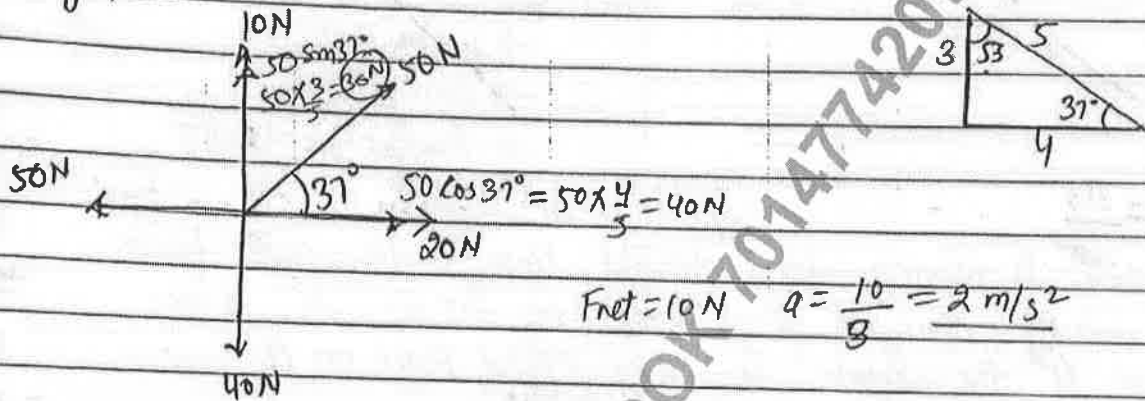 10N
50 sin37°
50×3/5=30N
50N
3
53
5
37°
4
50N
37°
50 cos 37° = 50×4/5 = 40N
20N
Fnet = 10N a = 10/5 = 2 m/s²
40N
OOK 701477420